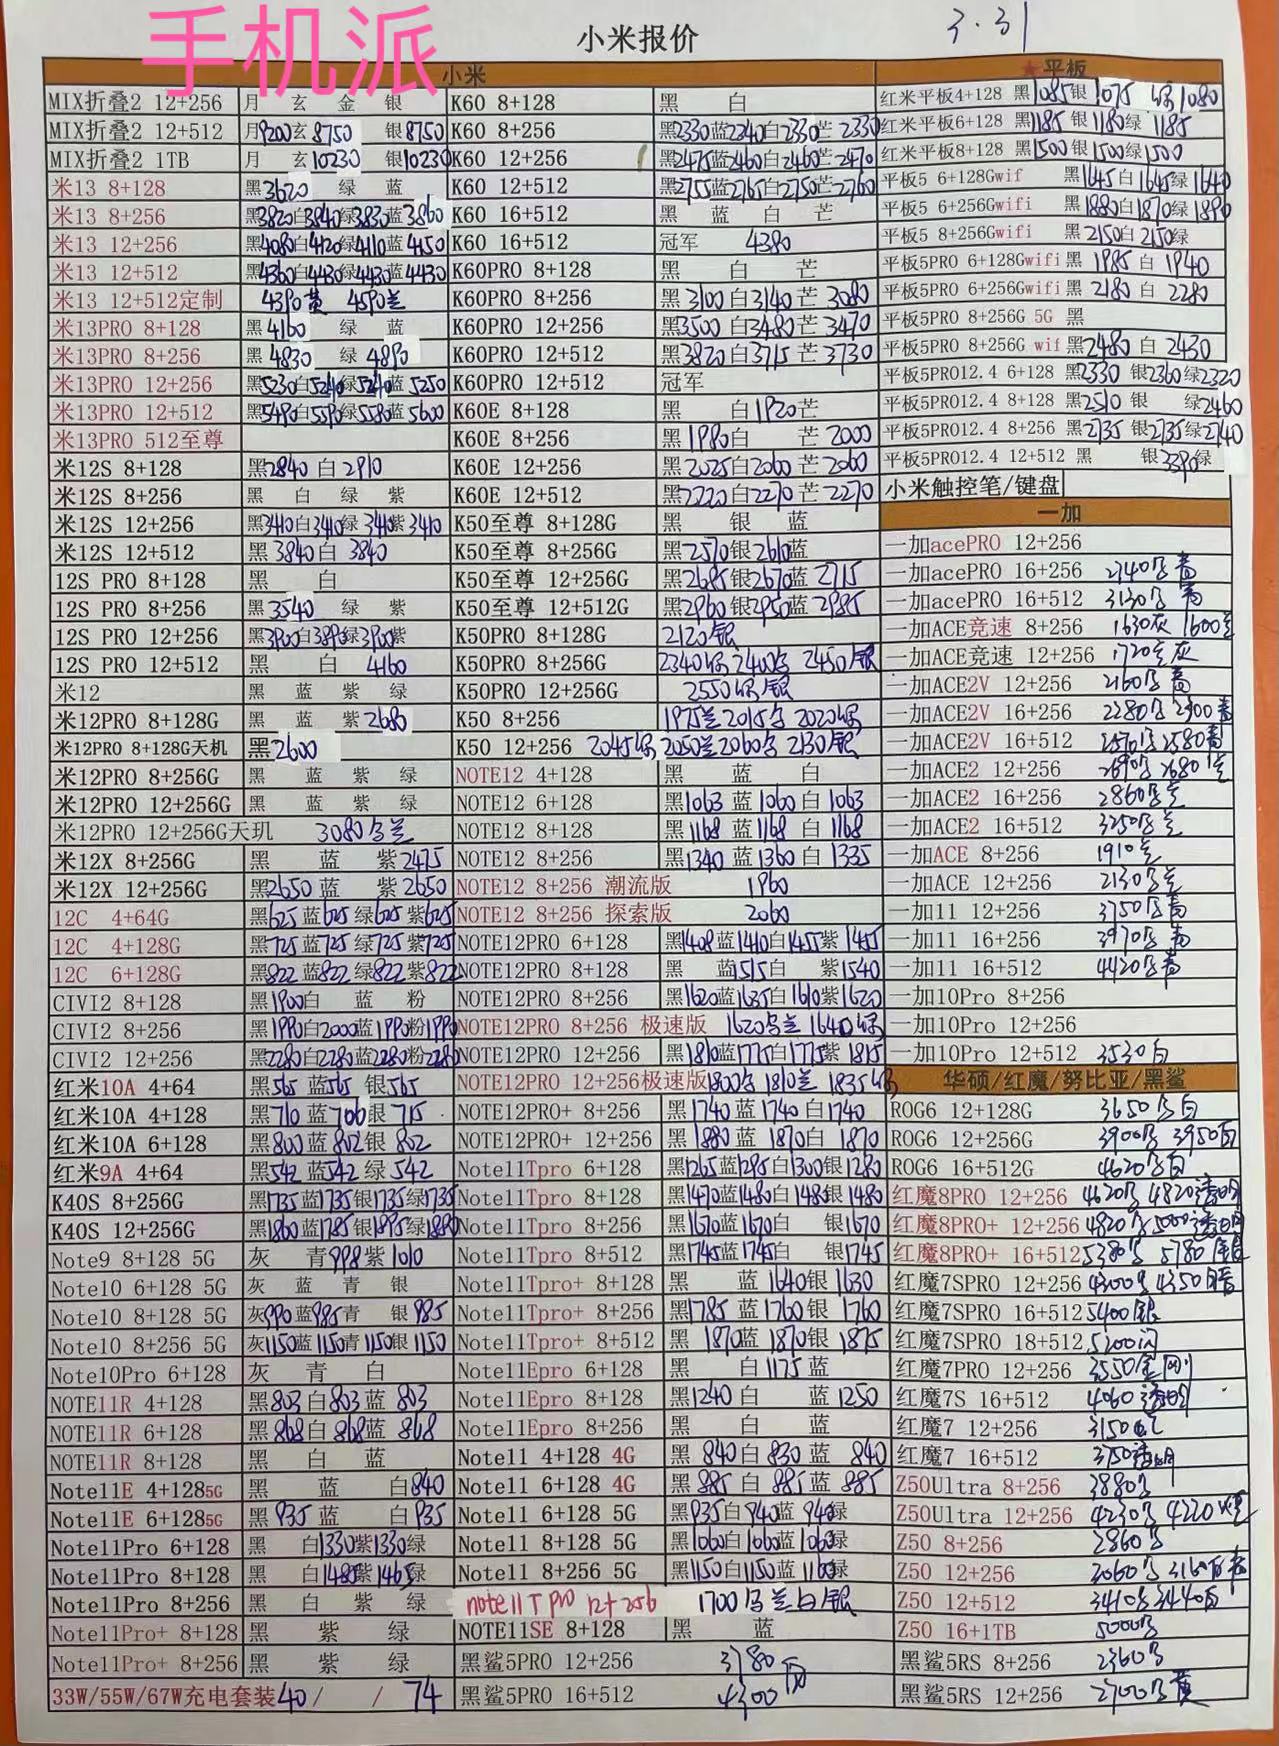 手机派
小米报价
3.31
小米
MIX折叠2 12+256 月 玄 金 银
MIX折叠2 12+512 月9200玄8750 银8750
MIX折叠2 1TB 月 玄10230 银10230
米13 8+128 黑3620 绿 蓝
米13 8+256 黑3820白3840绿3830蓝3860
米13 12+256 黑4080白4120绿4110蓝4150
米13 12+512 黑4360白4430绿4430蓝4430
米13 12+512定制 4390黄 4590兰
米13PRO 8+128 黑4160 绿 蓝
米13PRO 8+256 黑4830 绿4890
米13PRO 12+256 黑5230白5240绿5240蓝5250
米13PRO 12+512 黑5490白5590绿5580蓝5600
米13PRO 512至尊
米12S 8+128 黑2840 白2910
米12S 8+256 黑 白 绿 紫
米12S 12+256 黑3410白3410绿3410紫3410
米12S 12+512 黑3840白3840
12S PRO 8+128 黑 白
12S PRO 8+256 黑3540 绿 紫
12S PRO 12+256 黑3900白3890绿3900紫
12S PRO 12+512 黑 白 4160
米12 黑 蓝 紫 绿
米12PRO 8+128G 黑 蓝 紫2680
米12PRO 8+128G天机 黑2600
米12PRO 8+256G 黑 蓝 紫 绿
米12PRO 12+256G 黑 蓝 紫 绿
米12PRO 12+256G天玑 3080乌兰
米12X 8+256G 黑 蓝 紫2475
米12X 12+256G 黑2650蓝 紫2650
12C 4+64G 黑625蓝625绿625紫625
12C 4+128G 黑725蓝725绿725紫725
12C 6+128G 黑822蓝822绿822紫822
CIVI2 8+128 黑1900白 蓝 粉
CIVI2 8+256 黑1990白2000蓝1990粉1990
CIVI2 12+256 黑2280白2280蓝2280粉2280
红米10A 4+64 黑565蓝565银565
红米10A 4+128 黑710蓝706银715
红米10A 6+128 黑800蓝802银802
红米9A 4+64 黑542蓝542绿542
K40S 8+256G 黑1735蓝1735银1735绿1735
K40S 12+256G 黑1860蓝1785银1895绿1880
Note9 8+128 5G 灰 青998紫1010
Note10 6+128 5G 灰 蓝 青 银
Note10 8+128 5G 灰990蓝985青 银985
Note10 8+256 5G 灰1150蓝1150青1150银1150
Note10Pro 6+128 灰 青 白
NOTE11R 4+128 黑803白803蓝803
NOTE11R 6+128 黑868白868蓝868
NOTE11R 8+128 黑 白 蓝
Note11E 4+1285G 黑 蓝 白840
Note11E 6+1285G 黑935 蓝 白935
Note11Pro 6+128 黑 白1330紫1330绿
Note11Pro 8+128 黑 白1485紫1465绿
Note11Pro 8+256 黑 白 紫 绿
Note11Pro+ 8+128 黑 紫 绿
Note11Pro+ 8+256 黑 紫 绿
33W/55W/67W充电套装40 / / 74
K60 8+128 黑 白
K60 8+256 黑2330蓝2240白2330芒2330
K60 12+256 黑2475蓝2460白2460芒2470
K60 12+512 黑2755蓝2765白2750芒2760
K60 16+512 黑 蓝 白 芒
K60 16+512 冠军 4380
K60PRO 8+128 黑 白 芒
K60PRO 8+256 黑3100白3140芒3080
K60PRO 12+256 黑3500白3480芒3470
K60PRO 12+512 黑3820白3715芒3730
K60PRO 12+512 冠军
K60E 8+128 黑 白1920芒
K60E 8+256 黑1980白 芒2000
K60E 12+256 黑2025白2060芒2060
K60E 12+512 黑2220白2270芒2270
K50至尊 8+128G 黑 银 蓝
K50至尊 8+256G 黑2570银2610蓝
K50至尊 12+256G 黑2685银2670蓝2715
K50至尊 12+512G 黑2960银2950蓝2985
K50PRO 8+128G 2120银
K50PRO 8+256G 2340绿2400乌2450银
K50PRO 12+256G 2550绿银
K50 8+256 1975兰2015乌2020绿
K50 12+256 2045绿2050兰2060乌2130银
NOTE12 4+128 黑 蓝 白
NOTE12 6+128 黑1063蓝1060白1063
NOTE12 8+128 黑1168蓝1168白1168
NOTE12 8+256 黑1340蓝1360白1335
NOTE12 8+256 潮流版 1960
NOTE12 8+256 探索版 2060
NOTE12PRO 6+128 黑1408蓝1410白1455紫1455
NOTE12PRO 8+128 黑 蓝1515白 紫1540
NOTE12PRO 8+256 黑1620蓝1635白1610紫1620
NOTE12PRO 8+256 极速版 1620乌兰 1640绿
NOTE12PRO 12+256 黑1810蓝1775白1775紫1815
NOTE12PRO 12+256极速版1800乌1810兰1835绿
NOTE12PRO+ 8+256 黑1740蓝1740白1740
NOTE12PRO+ 12+256 黑1880蓝1870白1870
Note11Tpro 6+128 黑1265蓝1295白1300银1280
Note11Tpro 8+128 黑1470蓝1480白1480银1480
Note11Tpro 8+256 黑1670蓝1670白 银1670
Note11Tpro 8+512 黑1745蓝1745白 银1745
Note11Tpro+ 8+128 黑 蓝1640银1630
Note11Tpro+ 8+256 黑1785蓝1760银1760
Note11Tpro+ 8+512 黑1870蓝1870银1875
Note11Epro 6+128 黑 白1175蓝
Note11Epro 8+128 黑1240白 蓝1250
Note11Epro 8+256 黑 白 蓝
Note11 4+128 4G 黑840白830蓝840
Note11 6+128 4G 黑885白885蓝885
Note11 6+128 5G 黑935白940蓝940绿
Note11 8+128 5G 黑1060白1060蓝1060绿
Note11 8+256 5G 黑1150白1150蓝1160绿
note11T pro 12+256 1700乌兰白银
NOTE11SE 8+128 黑 蓝
黑鲨5PRO 12+256 3780
黑鲨5PRO 16+512 4300
平板
红米平板4+128 黑1085银1075绿1080
红米平板6+128 黑1185银1180绿1185
红米平板8+128 黑1500银1500绿1500
平板5 6+128Gwif 黑1645白1645绿1640
平板5 6+256Gwifi 黑1880白1870绿1890
平板5 8+256Gwifi 黑2150白2150绿
平板5PRO 6+128Gwifi 黑1985白1940
平板5PRO 6+256Gwifi 黑2180白2280
平板5PRO 8+256G 5G 黑
平板5PRO 8+256G wif 黑2480白2430
平板5PRO12.4 6+128 黑2330银2360绿2320
平板5PRO12.4 8+128 黑2510银 绿2460
平板5PRO12.4 8+256 黑2735银2735绿2740
平板5PRO12.4 12+512 黑 银3390绿
小米触控笔/键盘
一加
一加acePRO 12+256
一加acePRO 16+256 2740乌青
一加acePRO 16+512 3130乌青
一加ACE竞速 8+256 1630灰 1600兰
一加ACE竞速 12+256 1720兰灰
一加ACE2V 12+256 2160乌青
一加ACE2V 16+256 2280乌2300青
一加ACE2V 16+512 2570乌2580青
一加ACE2 12+256 2690乌2680兰
一加ACE2 16+256 2860乌兰
一加ACE2 16+512 3250乌兰
一加ACE 8+256 1910兰
一加ACE 12+256 2130乌兰
一加11 12+256 3750乌青
一加11 16+256 3970乌青
一加11 16+512 4420乌青
一加10Pro 8+256
一加10Pro 12+256
一加10Pro 12+512 3530白
华硕/红魔/努比亚/黑鲨
ROG6 12+128G 3650乌白
ROG6 12+256G 3900乌 3950白
ROG6 16+512G 4620乌白
红魔8PRO 12+256 4620乌 4820透明
红魔8PRO+ 12+256 4820乌5000透明
红魔8PRO+ 16+512 5380乌 5780银
红魔7SPRO 12+256 4300乌4350
红魔7SPRO 16+512 5400银
红魔7SPRO 18+512 5200闪
红魔7PRO 12+256 3550
红魔7S 16+512 4060透明
红魔7 12+256 3150
红魔7 16+512 3750透明
Z50Ultra 8+256 3880乌
Z50Ultra 12+256 4230乌 4220
Z50 8+256 2860乌
Z50 12+256 3060乌 3160
Z50 12+512 3410乌3440白
Z50 16+1TB 5000乌
黑鲨5RS 8+256 2360乌
黑鲨5RS 12+256 2700乌黄